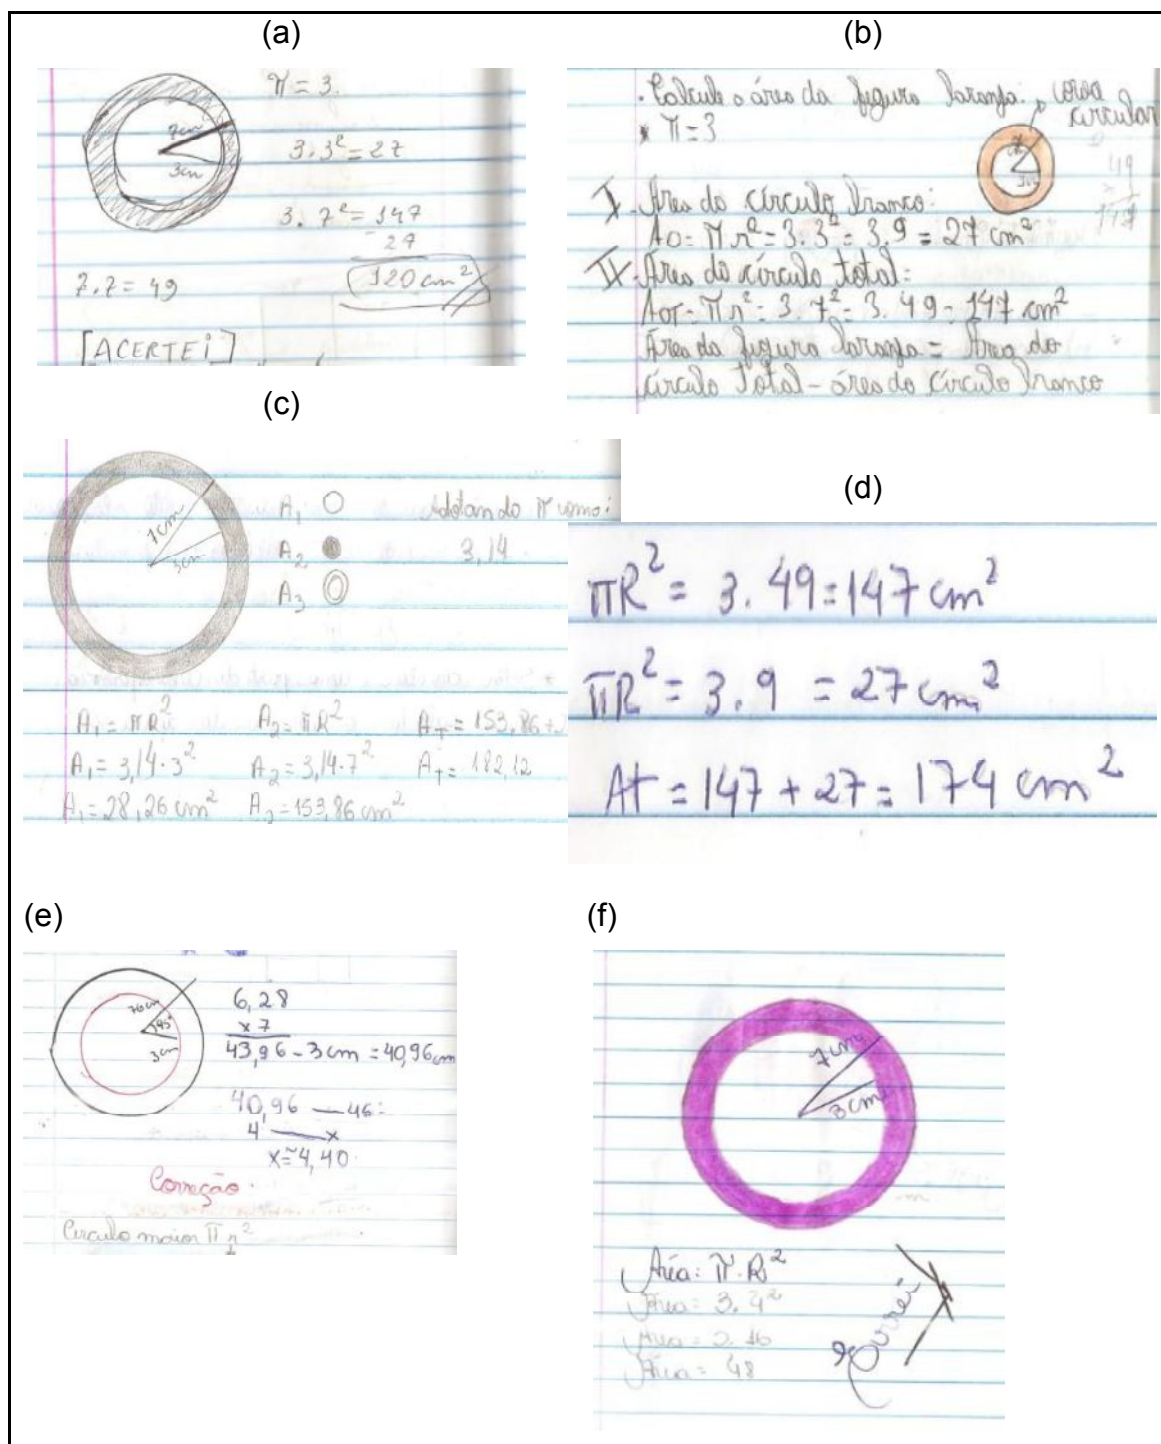 (a)
π = 3.
7cm
3cm
3.3² = 27
3.7² = 147
- 27
120 cm²
7.7 = 49
[ACERTEI]
(b)
. Calcule a área da figura laranja. coroa circular
* π = 3
49
147
I - Área do círculo branco:
Ao = π r² = 3.3² = 3.9 = 27 cm²
II - Área do círculo total:
AoT = π r² = 3.7² = 3.49 = 147 cm²
Área da figura laranja = Área do
círculo total - área do círculo branco
(c)
7cm
3cm
A₁
A₂
A₃
Adotando π como:
3,14
A₁ = πR² A₂ = πR² AT = 153,86 +
A₁ = 3,14.3² A₂ = 3,14.7² AT = 182,12
A₁ = 28,26 cm² A₂ = 153,86 cm²
(d)
πR² = 3.49 = 147 cm²
πR² = 3.9 = 27 cm²
At = 147 + 27 = 174 cm²
(e)
45°
3cm
6,28
x 7
43,96 - 3 cm = 40,96 cm
40,96
4 x
x ≅ 4,40.
Correção.
Circulo maior π r²
(f)
7cm
3cm
Área: π.R²
Área = 3.4²
Área = 3.16
Área = 48
Errei